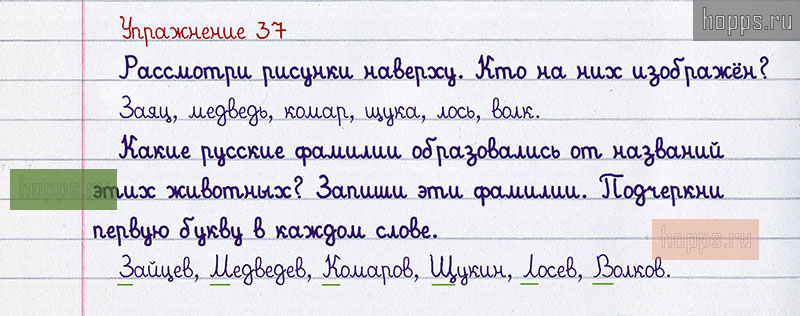 hopps.ru
Упражнение 37
Рассмотри рисунки наверху. Кто на них изображён?
Заяц, медведь, комар, щука, лось, волк.
Какие русские фамилии образовались от названий
hopps.ru
этих животных? Запиши эти фамилии. Подчеркни
первую букву в каждом слове.
hopps.ru
Зайцев, Медведев, Комаров, Щукин, Лосев, Волков.